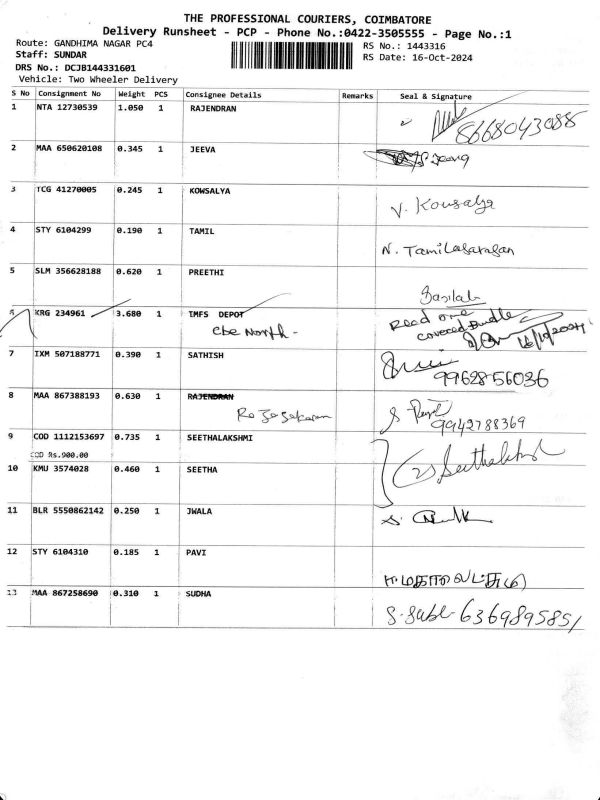 THE PROFESSIONAL COURIERS, COIMBATORE
Delivery Runsheet - PCP - Phone No.:0422-3505555 - Page No.:1
Route: GANDHIMA NAGAR PC4 RS No.: 1443316
Staff: SUNDAR RS Date: 16-Oct-2024
DRS No.: DCJB144331601
Vehicle: Two Wheeler Delivery
S No Consignment No Weight PCS Consignee Details Remarks Seal & Signature
1 NTA 12730539 1.050 1 RAJENDRAN 8668043088
2 MAA 650620108 0.345 1 JEEVA
3 TCG 41270005 0.245 1 KOWSALYA V. Kowsalya
4 STY 6104299 0.190 1 TAMIL N. Tamilasarasan
5 SLM 356628188 0.620 1 PREETHI
6 KRG 234961 3.680 1 IMFS DEPOT Read one
cbe North - covered Bundle
16/10/2024
7 IXM 507188771 0.390 1 SATHISH
9962856036
8 MAA 867388193 0.630 1 RAJENDRAN
Rajasekaran 9942788369
9 COD 1112153697 0.735 1 SEETHALAKSHMI
COD Rs.900.00 (2) Seethalakshmi
10 KMU 3574028 0.460 1 SEETHA
11 BLR 5550862142 0.250 1 JWALA
12 STY 6104310 0.185 1 PAVI
13 MAA 867258690 0.310 1 SUDHA
6369895851